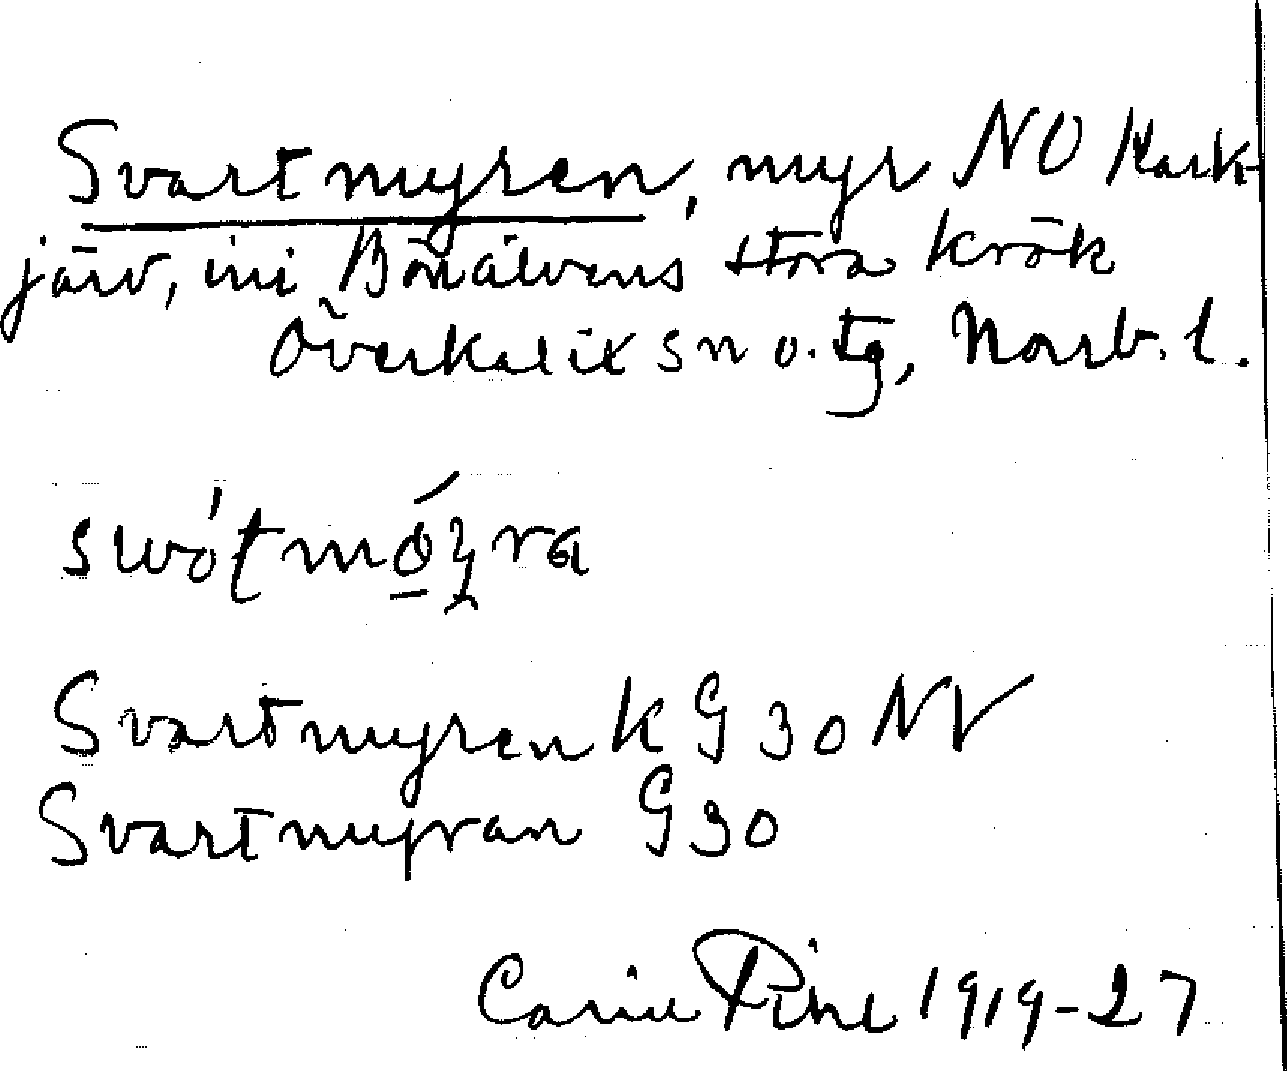 Svartmyren, myr NO Hark-
järv, ini Bönälvens stora krök
Överkalix sn o. tg, Norrb. l.
swótmóyra
Svartmyren k G 30 NV
Svartmyran G 30
Carin Pihl 1919-27